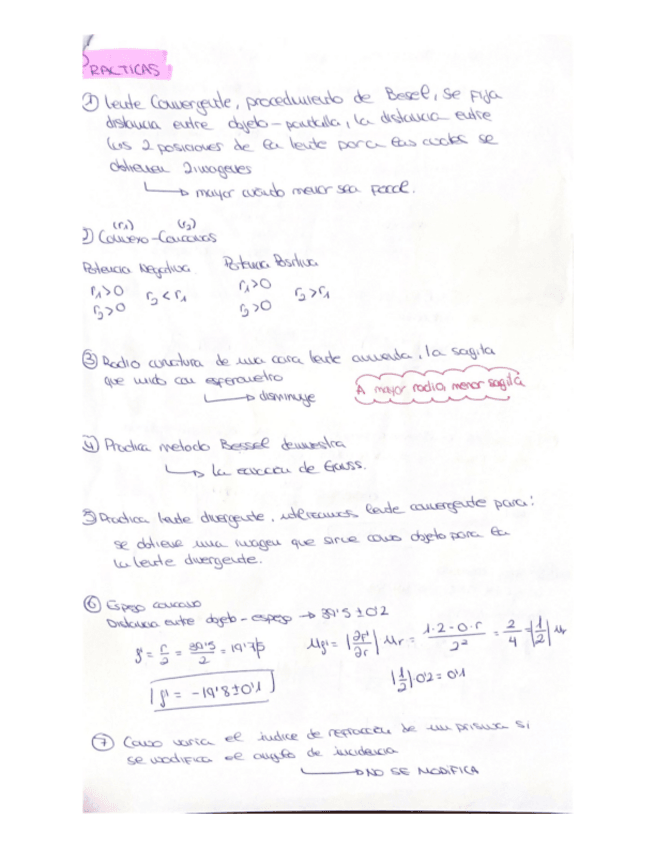 PRACTICAS
① Lente Convergente, procedimiento de Besel, se fija
distancia entre objeto-pantalla, la distancia entre
las 2 posiciones de la lente para las cuales se
obtienen 2 imagenes
↳ mayor cuando menor sea focal.
(r₁) (r₂)
2) Convexo-Concavas
Potencia Negativa Potencia Positiva
r₁>0 r₂<r₁ r₁>0 r₂>r₁
r₂>0 r₂>0
③ Radio curvatura de una cara lente aumenta, la sagita
que mido con esferometro
↳ disminuye
A mayor radio, menor sagita
④ Practica metodo Bessel demuestra
↳ la ecuacion de Gauss.
⑤ Practica lente divergente, utilizamos lente convergente para:
se obtiene una imagen que sirve como objeto para la
la lente divergente.
⑥ Espejo concavo
Distancia entre objeto-espejo → 39'5 ± 0'2
f' = r/2 = 39'5/2 = 19'75 Uf' = |∂f'/∂r| Ur = 1·2-0·r/2² = 2/4 = |1/2| Ur
|1/2|·0'2 = 0'1
f' = -19'8 ± 0'1
⑦ Como varia el indice de refraccion de un prisma si
se modifica el angulo de incidencia
→ NO SE MODIFICA